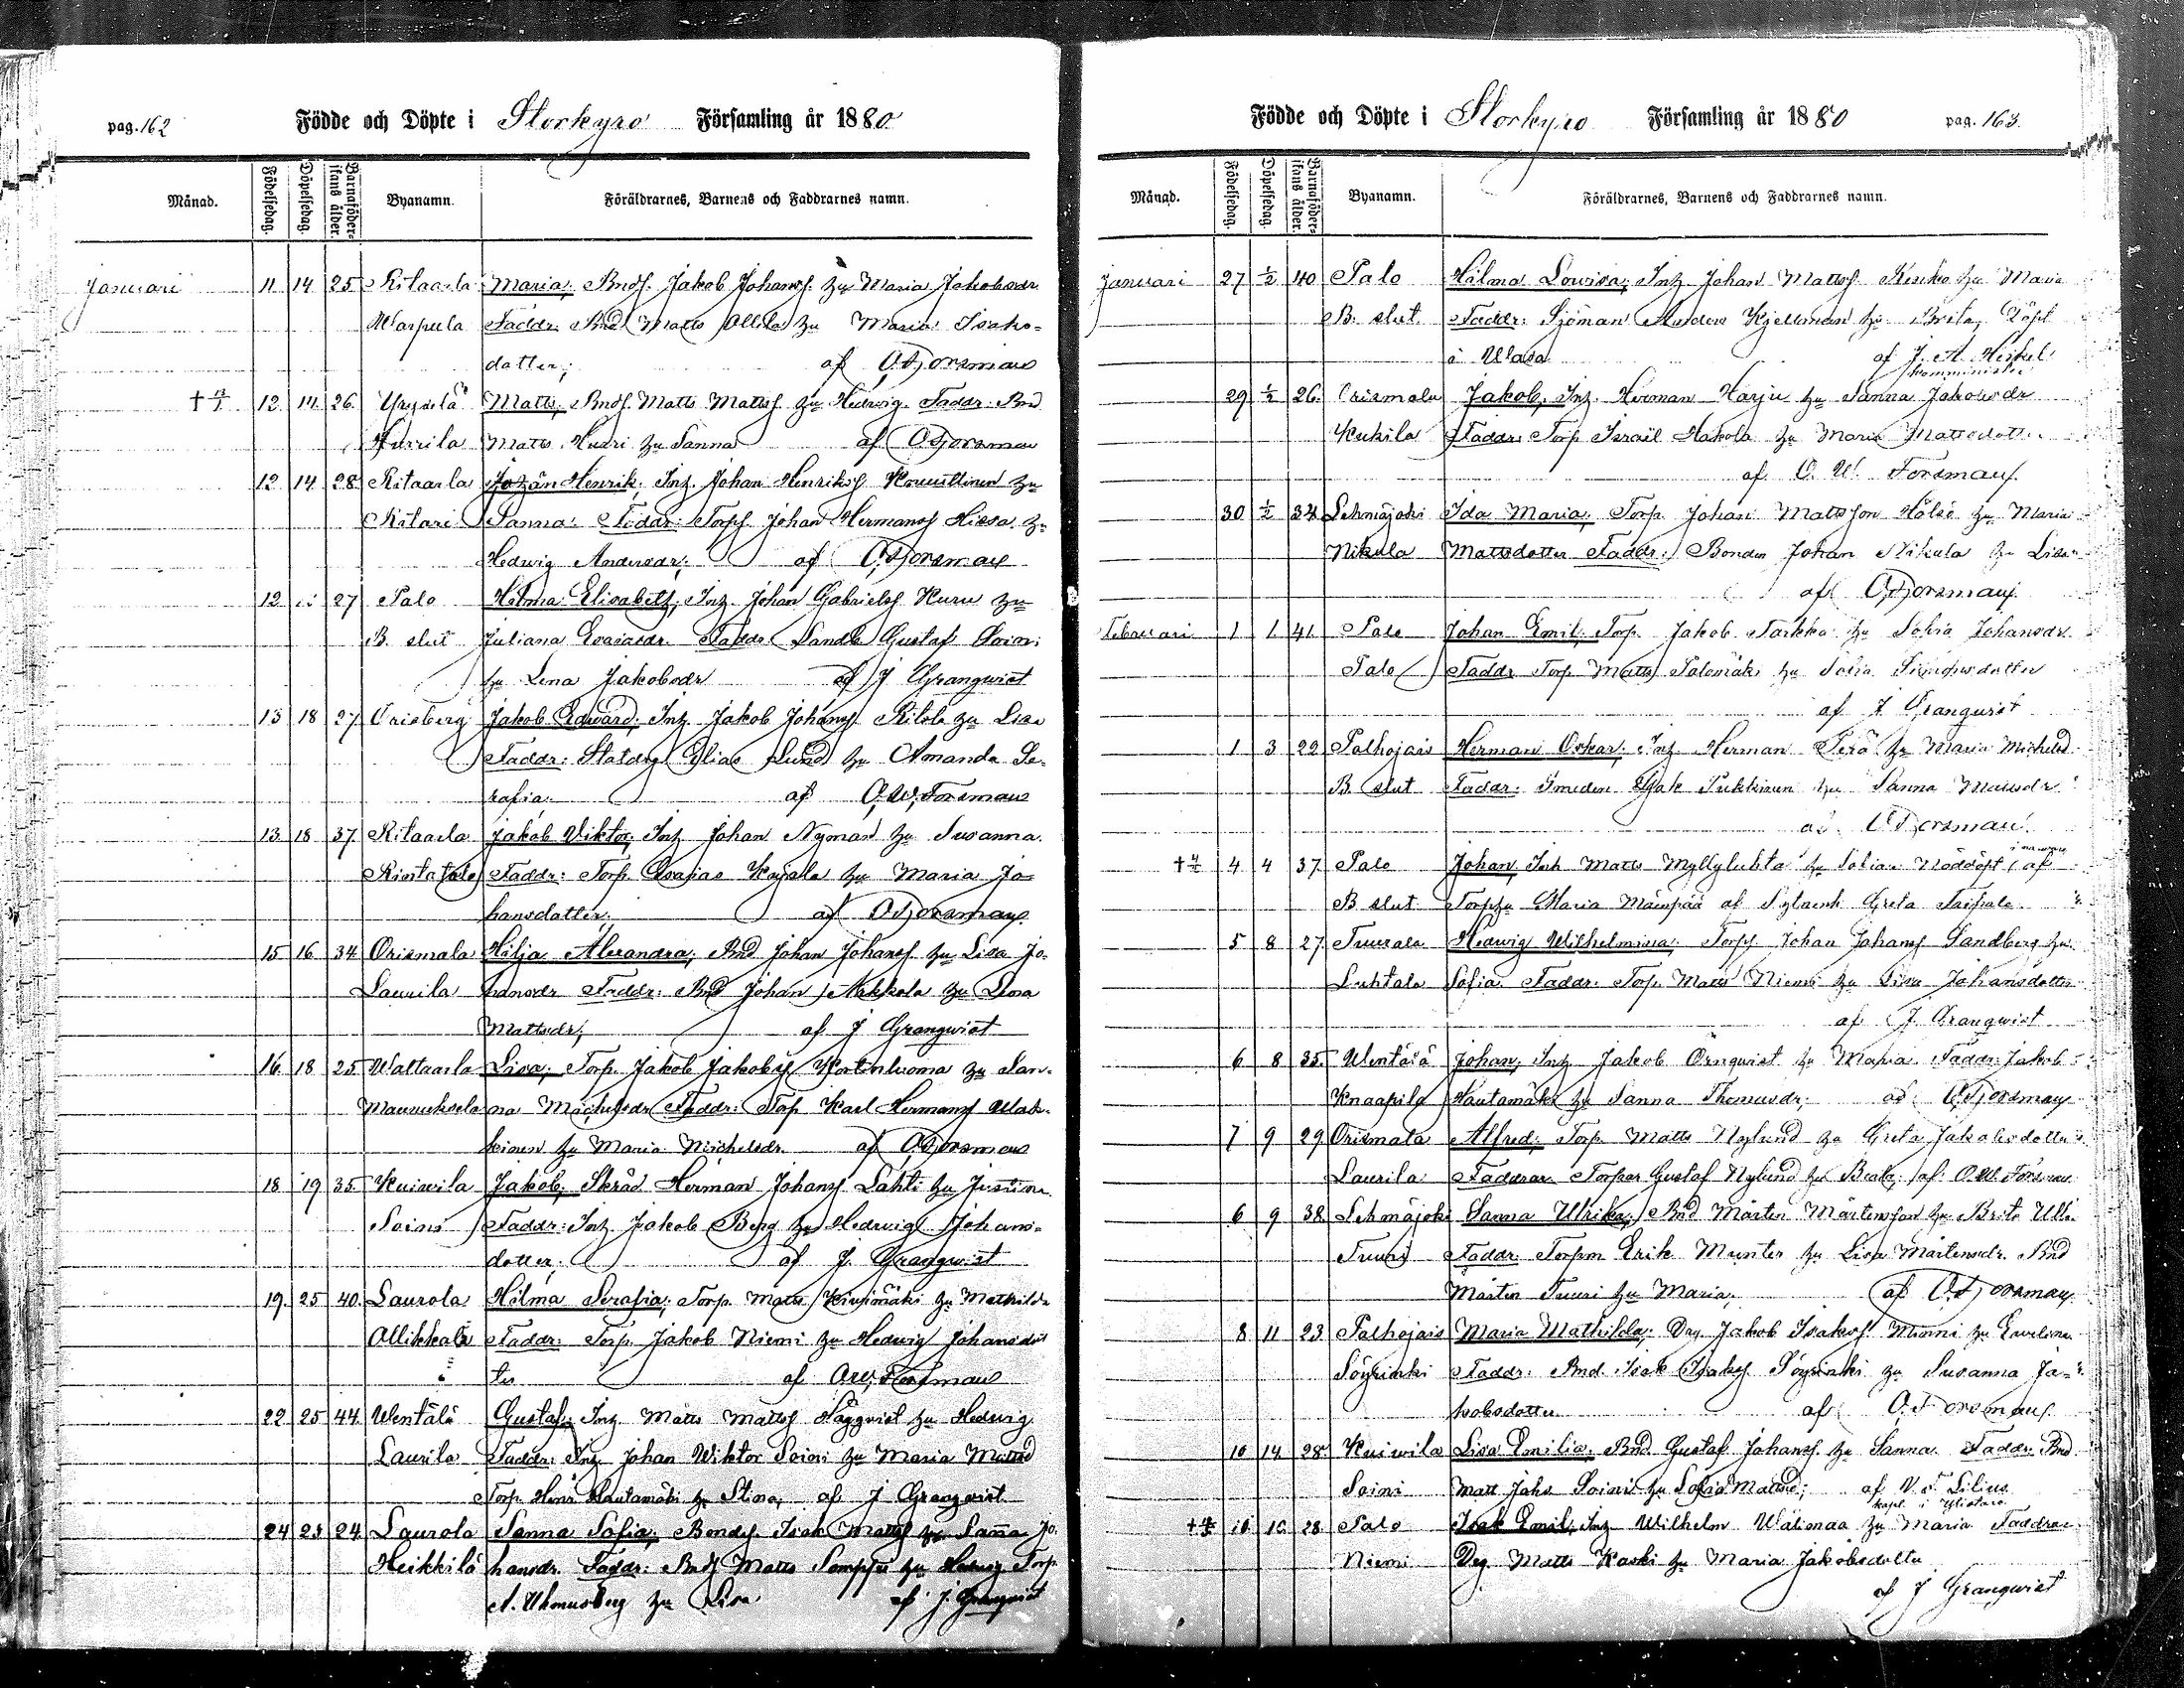 pag. 162
Födde och Döpte i Storkyro Församling år 1880
Månad. Födelsedag. Döpelsedag. Barnaföderskans ålder. Byanamn. Föräldrarnes, Barnens och Faddrarnes namn.
Januari 11 14 25 Ritaarla Maria, Bndf. Jakob Johansf. hu Maria Jakobsdr
Warpula Faddr. Bnd Matts Ollila hu Maria Isaks-
dotter; af O.W. Forsman
12 14 26 Matts, Bndf. Matts Mattsf. hu Hedwig. Faddr. Bnd
Hurrila Matts Hurri hu Sanna af O.W. Forsman
12 14 28 Ritaarla Johan Henrik, Inh. Johan Henriksf hu
Ritari Sanna. Faddr: Torpf. Johan Hermansf Hissa hu
Hedwig Andersdr; af O.W. Forsman
12 27 Palo Hilma Elisabeth, Inh. Johan Gabrielsf Kuru hu
B. slut Juliana Faddr. Gustaf Soini
hu Lena Jakobsdr af J Granqwist
13 18 27 Orisberg Jakob Edward, Inh. Jakob Johansf. hu Lisa
Faddr: Statdrg Elias Lund hu Amanda Se-
rafia. af O.W. Forsman
13 18 37 Ritaarla Jakob Viktor, Inh Johan Nyman hu Susanna.
Faddr: Torp. Esaias Kajala hu Maria Jo-
hansdotter; af O.W. Forsman
15 16 34 Orismala Hilja Alexandra, Bnd Johan Johansf. hu Lisa Jo-
Laurila hansdr Faddr: Bnd Johan Nikkola hu Lena
Mattsdr; af J Granqwist
16 18 25 Waltaarla Lisa, Torp. Jakob Jakobsf hu San-
na Michelsdr Faddr: Torp Karl Hermansf
hu Maria Michelsdr. af O.W. Forsman
18 19 35 Kuiwila Jakob, Skräd Herman Johansf Lahti hu Justina.
Soini Faddr: Inh. Jakob Berg hu Hedwig Johans-
dotter; af J. Granqwist
19 25 40 Laurola Hilma Serafia, Torp. Matts Kiwimäki hu Mathilda
Ollikkala Faddr: Torp. Jakob Niemi hu Hedwig Johansdot
ter af O.W. Forsman
22 25 44 Wentälä Gustaf, Inh Matts Mattsf Häggvist hu Hedwig
Laurila Faddr: Inh Johan Wiktor Soini hu Maria Mattsd
Torp. Henr Hautamäki hu Stina, af J Granqwist
24 25 24 Laurola Sanna Sofia, Bondef. Isak Mattsf hu Sanna Jo-
Heikkilä hansdr. Faddr: Bndf Matts Somppi hu Hedwig Torp.
hu Lisa af J. Granqwist
Födde och Döpte i Storkyro Församling år 1880 pag. 163.
Månad. Födelsedag. Döpelsedag. Barnaföderskans ålder. Byanamn. Föräldrarnes, Barnens och Faddrarnes namn.
Januari 27 1/2 40 Palo Hilma Lowisa, Inh. Johan Mattsf. hu Maria
B. slut. Faddr: Sjöman Anders Kjellman hu Brita, Döpt
i Wasa af J. A. Heikel
Komminister
29 1/2 26 Orismala Jakob, Inh. Herman Harju hu Sanna Jakobsdr
Kukila Faddr: Torp Israël Hakola hu Maria Mattsdott.
af O. W. Forsman
30 1/2 34 Lehmäjoki Ida Maria, Torp. Johan Mattsson Hölsö hu Maria
Nikula Mattsdotter Faddr: Bonden Johan Nikula hu Lisa
af O.W. Forsman
Februari 1 1 41 Palo Johan Emil, Torp. Jakob Tarkka hu Sofia Johansdr.
Palo Faddr Torp Matts Palomäki hu Sofia Simonsdotter
af J Granqwist
1 3 22 Palhojais Herman Oskar, Inh Herman Perä hu Maria Michelsd.
B. slut Faddr: Smeden Isak Pukkinen hu Sanna
af O.W. Forsman
4 4 37 Palo Johan, Inh Matts Myllyluhta hu Sofia. Nöddöpt af
B. slut Torp.hu Maria Mäenpää af Greta Taipale.
5 8 27 Tuurala Hedwig Wilhelmina, Torpf. Johan Johansf Sandberg hu
Luhtala Sofia Faddr. Torp. Matts Niemi hu Lisa Johansdotter
af J. Granqwist
6 8 35 Wentälä Johan, Inh Jakob Örnqvist hu Maria Faddr: Jakob
Knaapila Hautamäki hu Sanna Thomasdr; af O.W. Forsman
7 9 29 Orismala Alfred, Torp. Matts Nylund hu Greta Jakobsdotter
Laurila Faddrar Torpar Gustaf Nylund hu Beata, af O.W. Forsman
6 9 38 Lehmäjoki Sanna Ulrika, Bnd Mårten Mårtensson hu Brita Ulla.
Tuuri Faddr. Torpm Erik Munter hu Lisa Mårtensdr. Bnd
Mårten Tuuri hu Maria, af O.W. Forsman
8 11 23 Palhojais Maria Mathilda, Drg Jakob Isaksf. hu Ewelina
Söyrinki Faddr. Bnd. Isak Isaksf Söyrinki hu Susanna Ja-
kobsdotter af O.W. Forsman
10 14 28 Kuiwila Lisa Emilia, Bnd. Gustaf Johansf. hu Sanna. Faddr. Bnd.
Soini Matt Johs Soini hu Sofia Mattsd; af Lilius
kapl. i Ylistaro
28 Palo Isak Emil, Inh Wilhelm Wälimaa hu Maria Faddrar
Niemi Drg Matts Kaski hu Maria Jakobsdotter
af J Granqwist